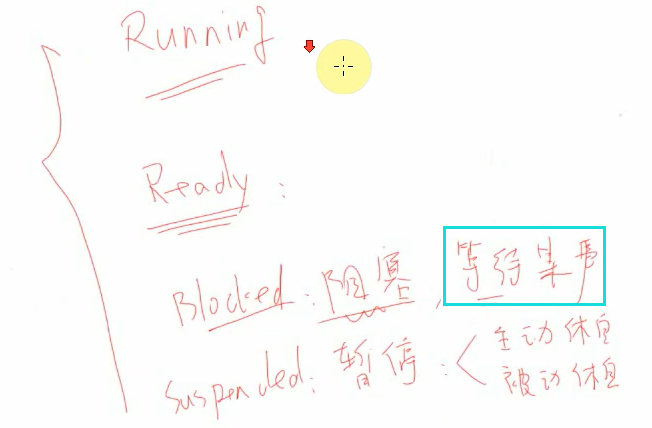 Running
Ready :
Blocked : 阻塞 , 等待某事
Suspended : 暂停 : < 主动休息
被动休息